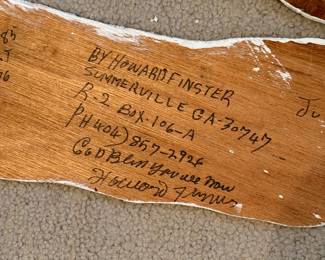 85
BY HOWARD FINSTER
SUMMERVILLE GA-30747
R-2 BOX-106-A
PH(404) 857-2926
GOD Bless you all Now
Howard Finster